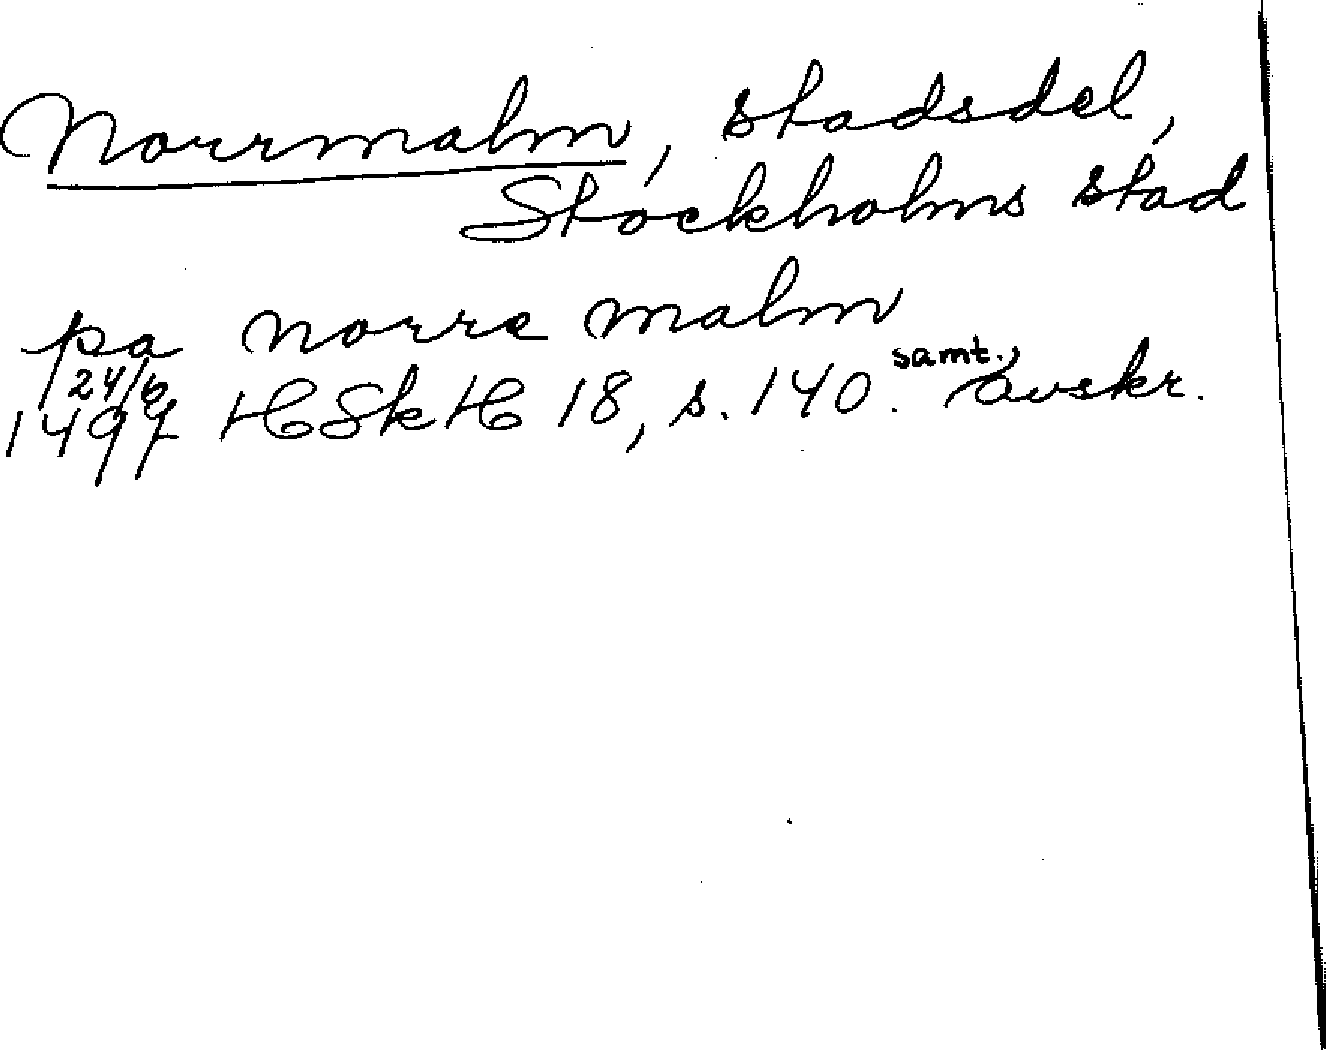 Norrmalm, stadsdel,
Stockholms stad
pa norre malm
24/6 samt.,
1497 HSkH 18, s. 140. avskr.